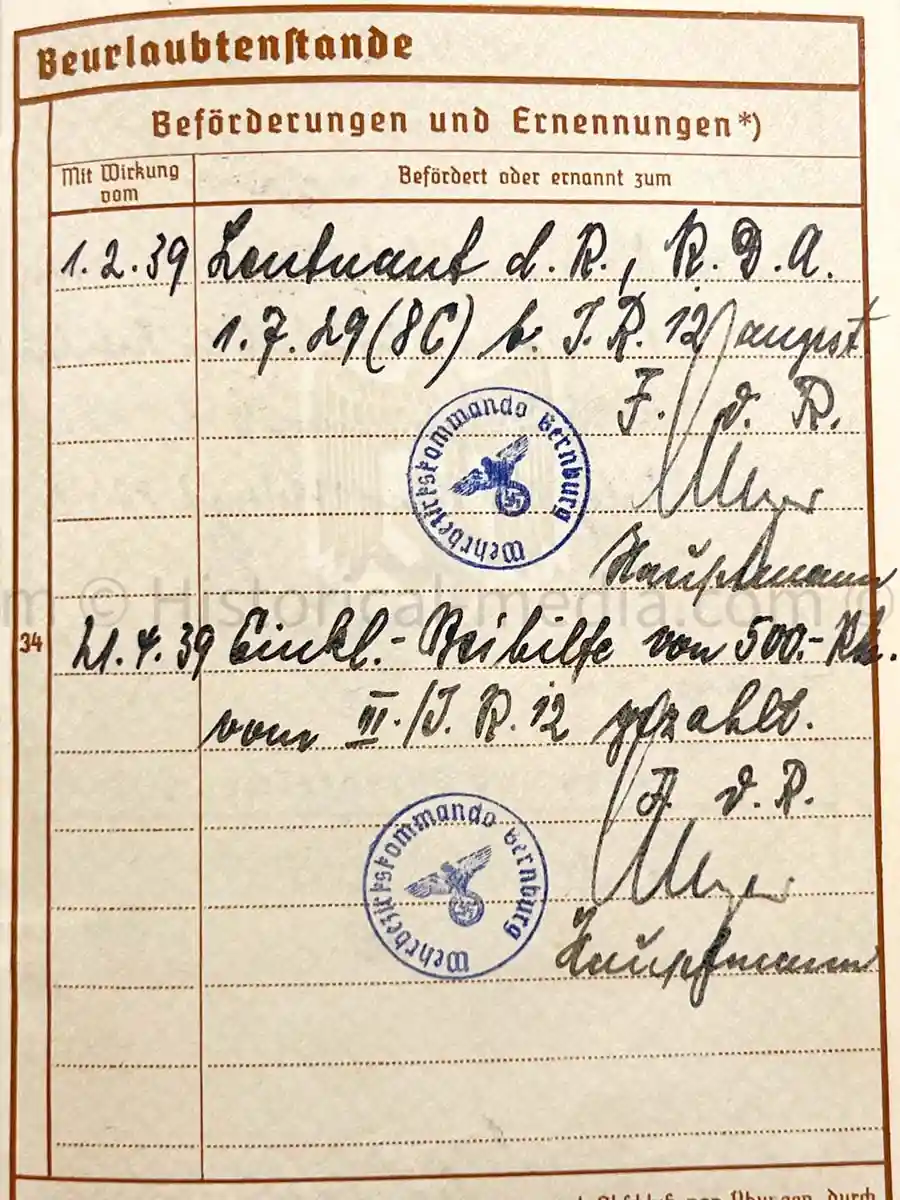 Beurlaubtenstande
Beförderungen und Ernennungen*)
Mit Wirkung vom
Befördert oder ernannt zum
1.2.39 Leutnant d. R., R. D. A.
1.7.29 (86) b. I. R. 12
F. d. R.
Wehrbezirkskommando Bernburg
Hauptmann
34
21.4.39 Einkl.-Beihilfe von 500.- RM.
vom III./I. R. 12 gezahlt.
F. d. R.
Wehrbezirkskommando Bernburg
Hauptmann
© Historical-media.com ©